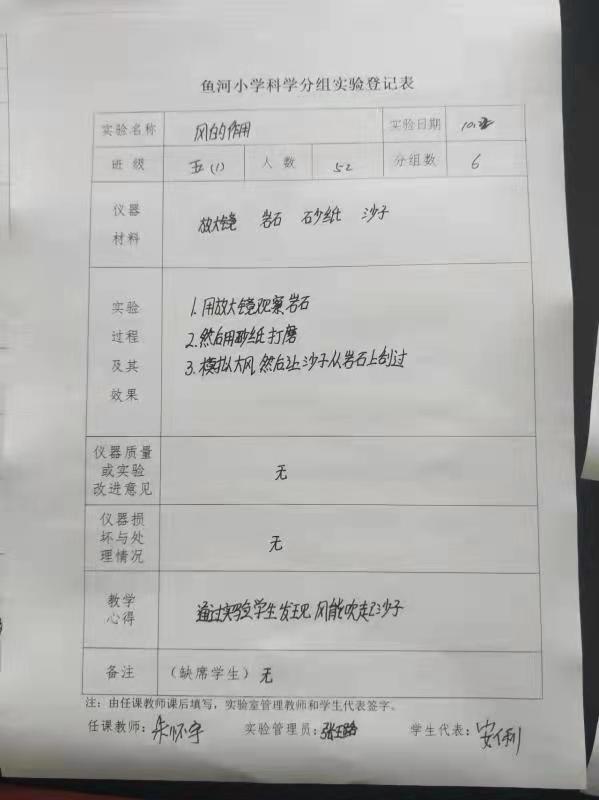 鱼河小学科学分组实验登记表
实验名称 风的作用 实验日期
班级 五(1) 人数 52 分组数 6
仪器材料 放大镜 岩石 砂纸 沙子
实验过程及其效果
1.用放大镜观察岩石
2.然后用砂纸打磨
3.模拟大风,然后让沙子从岩石上刮过
仪器质量或实验改进意见 无
仪器损坏与处理情况 无
教学心得 通过实验学生发现风能吹走沙子
备注 (缺席学生)无
注:由任课教师课后填写,实验室管理教师和学生代表签字。
任课教师:朱怀宇 实验管理员: 学生代表: